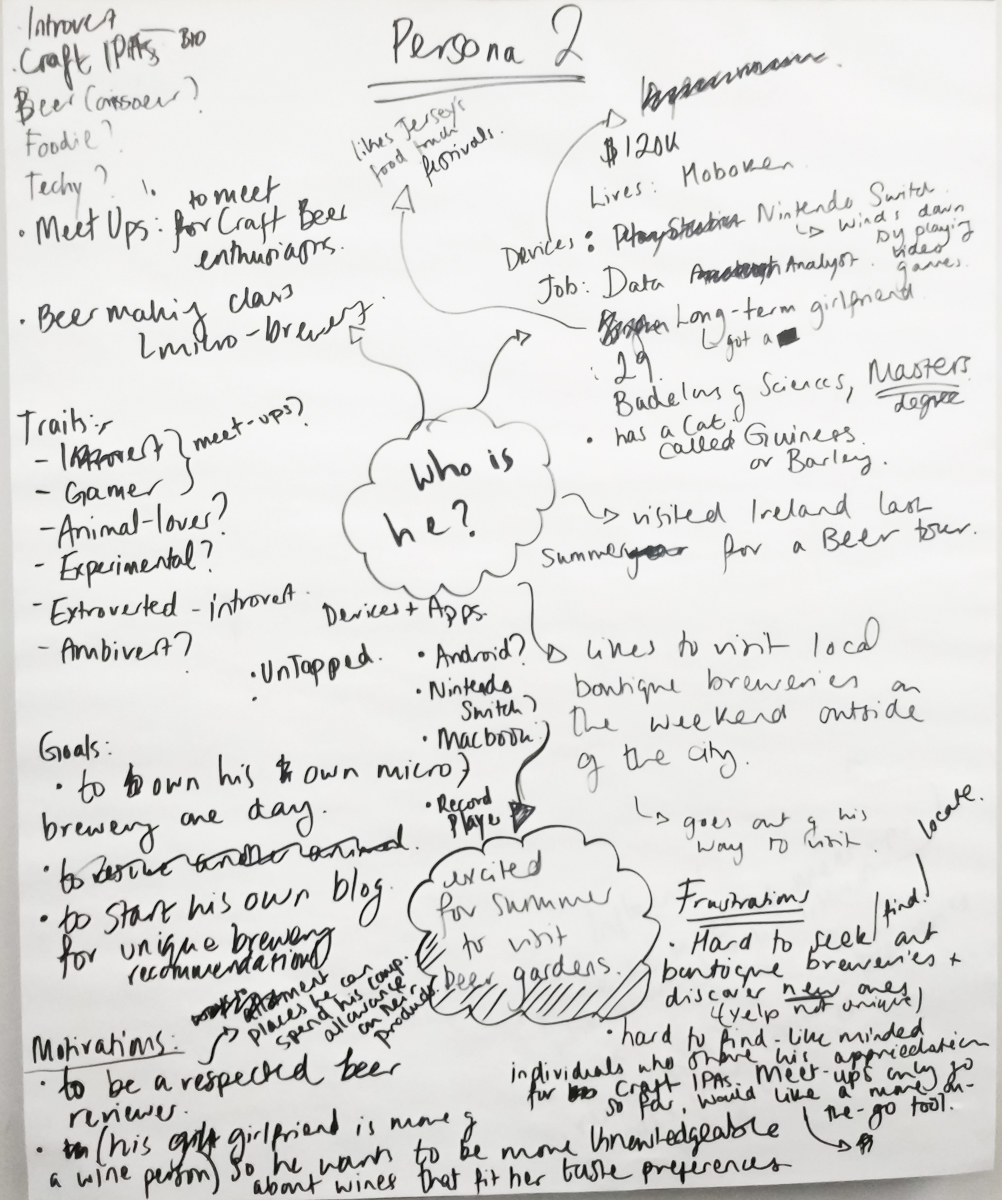 Persona 2
Introvert
Craft IPAs BIO
Beer Conissoer?
Foodie?
Techy?
• Meet Ups: to meet
for Craft Beer
enthusiasts.
• Beer making class
micro-brewery.
likes Jersey's
food truck
festivals.
$120K
Lives: Hoboken
Devices: PlayStation Nintendo Switch
↳ winds down
by playing
video
games.
Job: Data Analyst
Long-term girlfriend
↳ got a
: 29
Bachelors of Sciences, Masters
degree
• has a Cat
called Guiness
or Barley.
Who is
he?
Traits:
- Introvert } meet-ups?
- Gamer
- Animal-lover?
- Experimental?
- Extroverted - introvert.
- Ambivert?
visited Ireland last
Summer for a Beer tour.
Devices + Apps.
• UnTapped.
•
• Android?
• Nintendo
Switch?
• Macbook
• Record
Player
likes to visit local
boutique breweries on
the weekend outside
of the city.
↳ goes out of his
way to visit.
Goals:
• to own his own micro
brewery one day.
• to rescue another animal.
• to start his own blog
for unique brewery
recommendations
excited
for summer
to visit
beer gardens.
Frustrations
• Hard to seek out / find / locate.
boutique breweries +
discover new ones
(yelp not unique)
• hard to find like minded
individuals who share his appriedation
for Craft IPAs. Meet-ups only go
so far, would like a more on-
the-go tool.
Motivations:
places he can
spend his comp.
allowance
on new
products
• to be a respected beer
reviewer.
• (his girlfriend is more of
a wine person) so he want to be more knowledgeable
about wines that fit her taste preferences